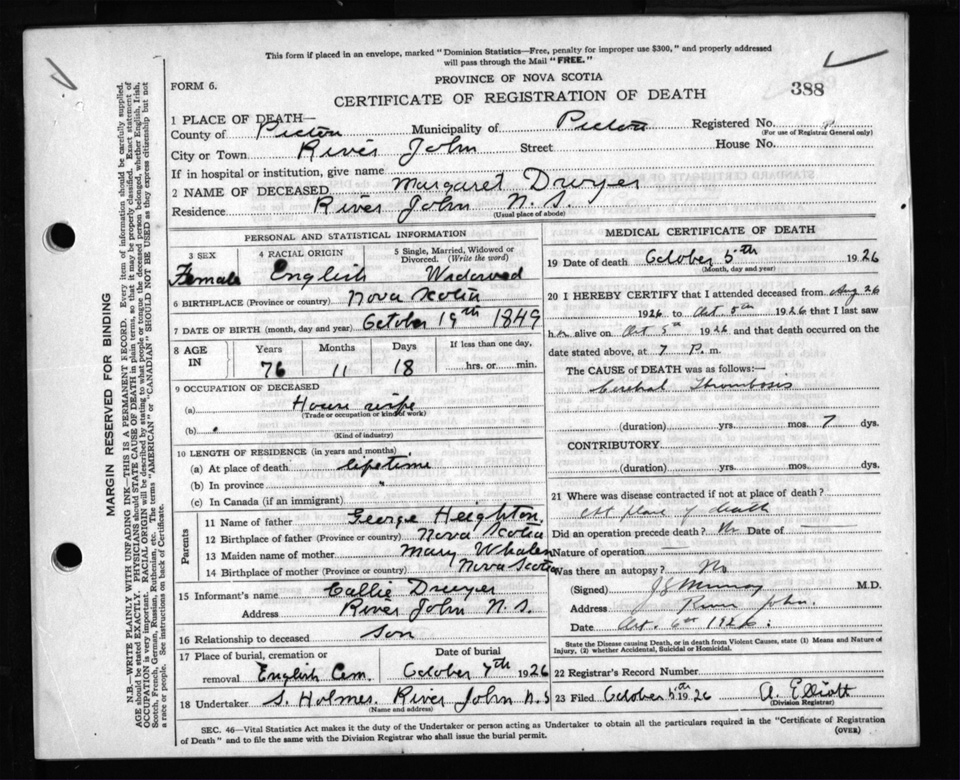 This form if placed in an envelope, marked "Dominion Statistics—Free, penalty for improper use $300," and properly addressed
will pass through the Mail "FREE."
FORM 6.
PROVINCE OF NOVA SCOTIA
CERTIFICATE OF REGISTRATION OF DEATH
388
1 PLACE OF DEATH—
County of Pictou Municipality of Pictou Registered No.
(For use of Registrar General only)
City or Town River John Street House No.
If in hospital or institution, give name
2 NAME OF DECEASED Margaret Dwyer
Residence River John N. S.
(Usual place of abode)
PERSONAL AND STATISTICAL INFORMATION
3 SEX 4 RACIAL ORIGIN 5 Single, Married, Widowed or Divorced. (Write the word)
Female English Widowed
6 BIRTHPLACE (Province or country) Nova Scotia
7 DATE OF BIRTH (month, day and year) October 19th 1849
8 AGE IN Years Months Days If less than one day,
76 11 18 hrs. or min.
9 OCCUPATION OF DECEASED
(a) House wife
(Trade or occupation or kind of work)
(b)
(Kind of industry)
10 LENGTH OF RESIDENCE (in years and months)
(a) At place of death lifetime
(b) In province "
(c) In Canada (if an immigrant)
Parents
11 Name of father George Heighton.
12 Birthplace of father (Province or country) Nova Scotia
13 Maiden name of mother Mary Whalen
14 Birthplace of mother (Province or country) Nova Scotia
15 Informant's name Callie Dwyer
Address River John N. S.
16 Relationship to deceased Son
17 Place of burial, cremation or removal English Cem. Date of burial October 7th 1926
18 Undertaker S. Holmes. River John N. S
(Name and address)
MEDICAL CERTIFICATE OF DEATH
19 Date of death October 5th 1926
(Month, day and year)
20 I HEREBY CERTIFY that I attended deceased from Aug 26
1926 to Oct. 5th 1926 that I last saw
her alive on Oct 5th 1926 and that death occurred on
date stated above, at 7 P. m.
The CAUSE OF DEATH was as follows:—
Cerebral Thrombosis
(duration) yrs. mos. 7 dys.
CONTRIBUTORY
(duration) yrs. mos. dys.
21 Where was disease contracted if not at place of death?
At place of death
Did an operation precede death? No Date of —
Nature of operation —
Was there an autopsy? No
(Signed) Murray M.D.
Address River John.
Date Oct. 6th 1926.
State the Disease causing Death, or in death from Violent Causes, state (1) Means and Nature of
Injury, (2) whether Accidental, Suicidal or Homicidal.
22 Registrar's Record Number
23 Filed October 5th 1926 A. Elliott
(Division Registrar)
SEC. 46—Vital Statistics Act makes it the duty of the Undertaker or person acting as Undertaker to obtain all the particulars required in the "Certificate of Registration
of Death" and to file the same with the Division Registrar who shall issue the burial permit.
(OVER)
MARGIN RESERVED FOR BINDING
N.B.—WRITE PLAINLY WITH UNFADING INK—THIS IS A PERMANENT RECORD. Every item of information should be carefully supplied.
AGE should be stated EXACTLY. PHYSICIANS should STATE CAUSE OF DEATH in plain terms, so that it may be properly classified. Exact statement of
OCCUPATION is very important. RACIAL ORIGIN will be described by stating to what people or tongue the deceased person belonged, whether English, Irish,
Scotch, French, German, Russian, Ruthenian, etc. The terms "AMERICAN" or "CANADIAN" SHOULD NOT BE USED as they express citizenship but not
a race or people. See instructions on back of Certificate.